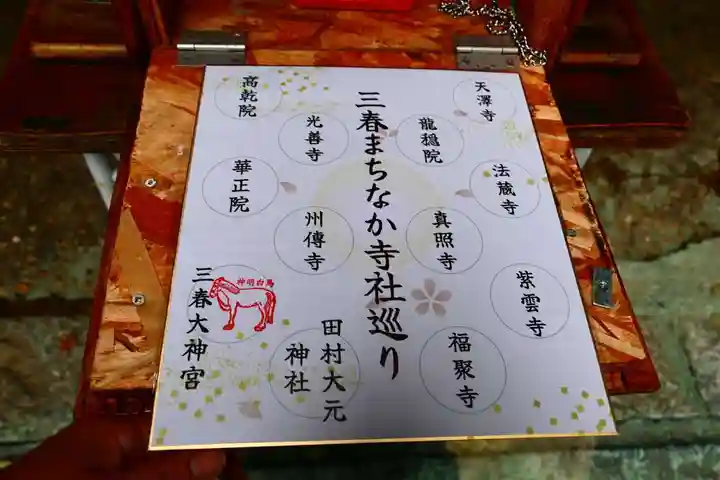 天澤寺
法蔵寺
紫雲寺
龍穏院
真照寺
福聚寺
三春まちなか寺社巡り
光善寺
州傳寺
田村大元
神社
高乾院
華正院
神明白馬
三春大神宮